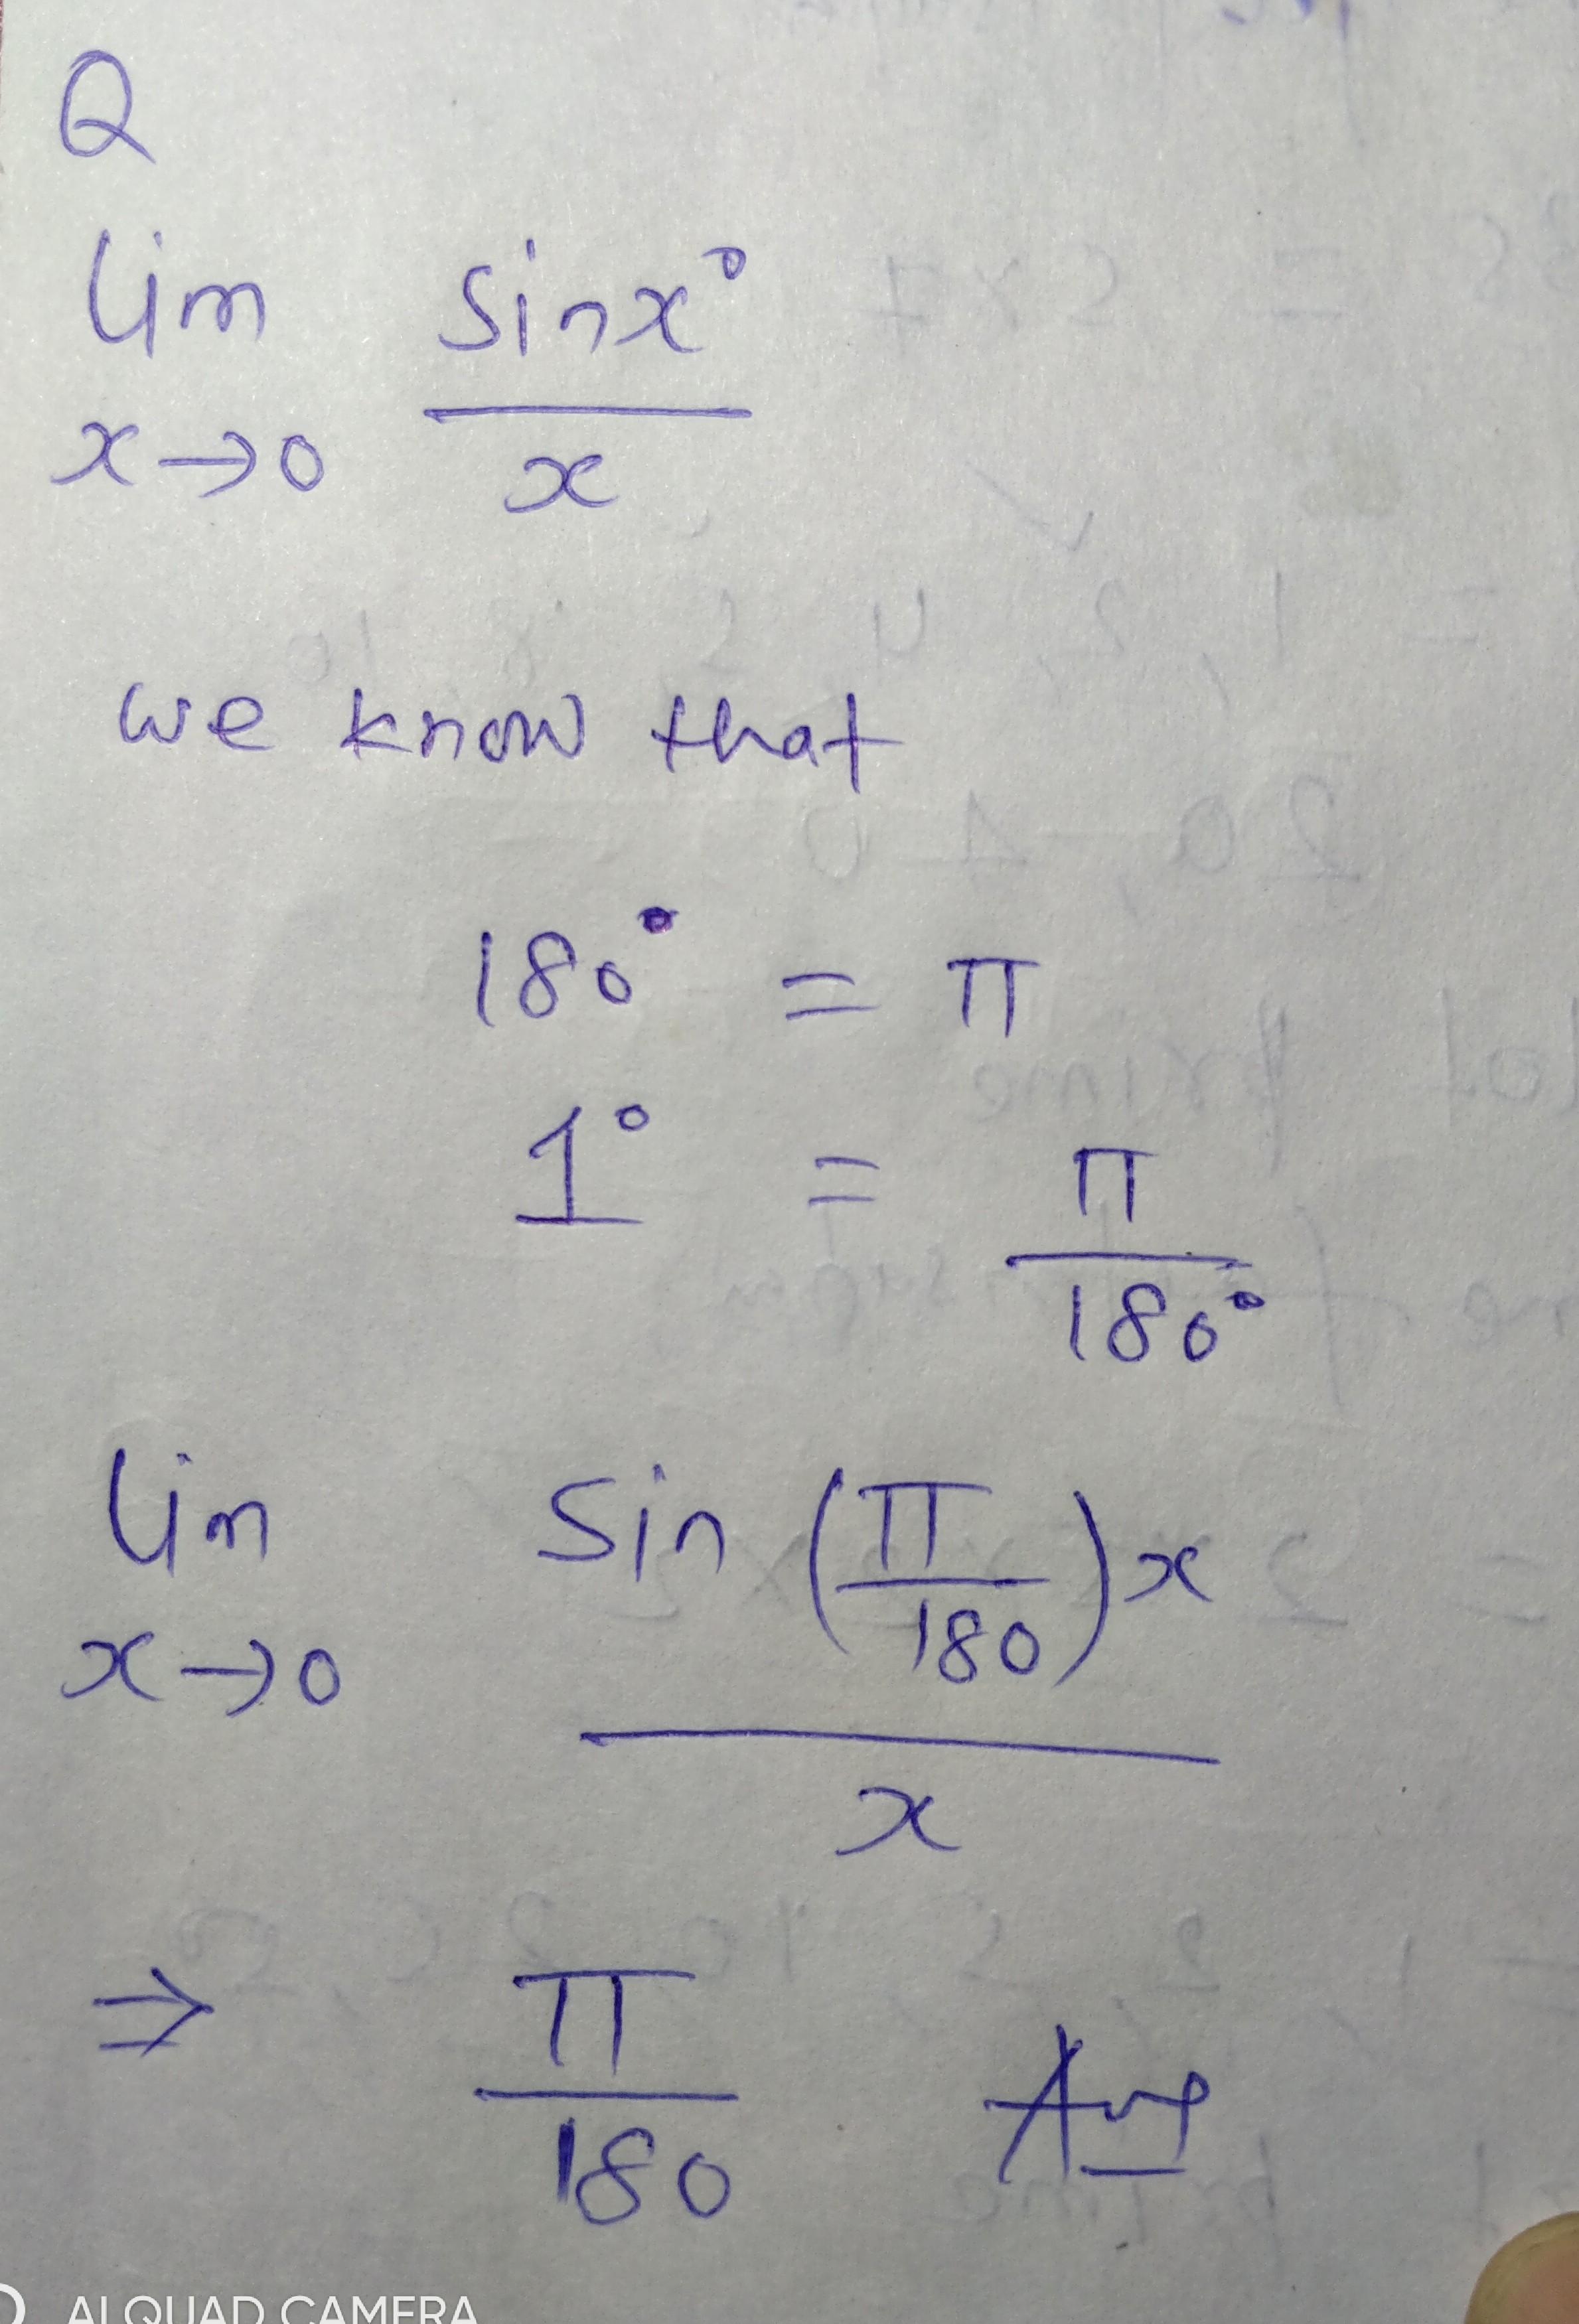 Q
lim sinx°
x→0 x
we know that
180° = π
1° = π
180°
lim sin (π/180)x
x→0
x
⇒ π
180 Ans
AI QUAD CAMERA